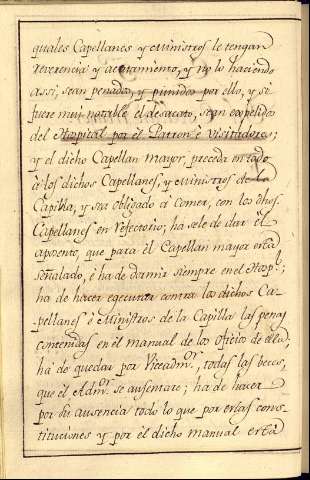 quales Capellanes y Ministros le tengan
reverencia y acatamiento, y no lo haciendo
assi, sean penados, y punidos por ello, y si
fuere mui notable el desacato, sean expelidos
del Hospital por el Patron è Visitadores;
y el dicho Capellan mayor, preceda en todo
à los dichos Capellanes, y Ministros de la
Capilla, y sea obligado à comer, con los dhos.
Capellanes en refectorio; ha sele de dar el
aposento, que para el Capellan mayor està
señalado, è ha de dormir siempre en el Hospl.;
ha de hacer egecutar contra los dichos Ca-
pellanes è Ministros de la Capilla las penas
contenidas en el manual de los oficios de ella,
hà de quedar por Viceadmor., todas las veces,
que el Admor. se ausentare; ha de hacer
por su ausencia todo lo que por estas cons-
tituciones y por el dicho manual està